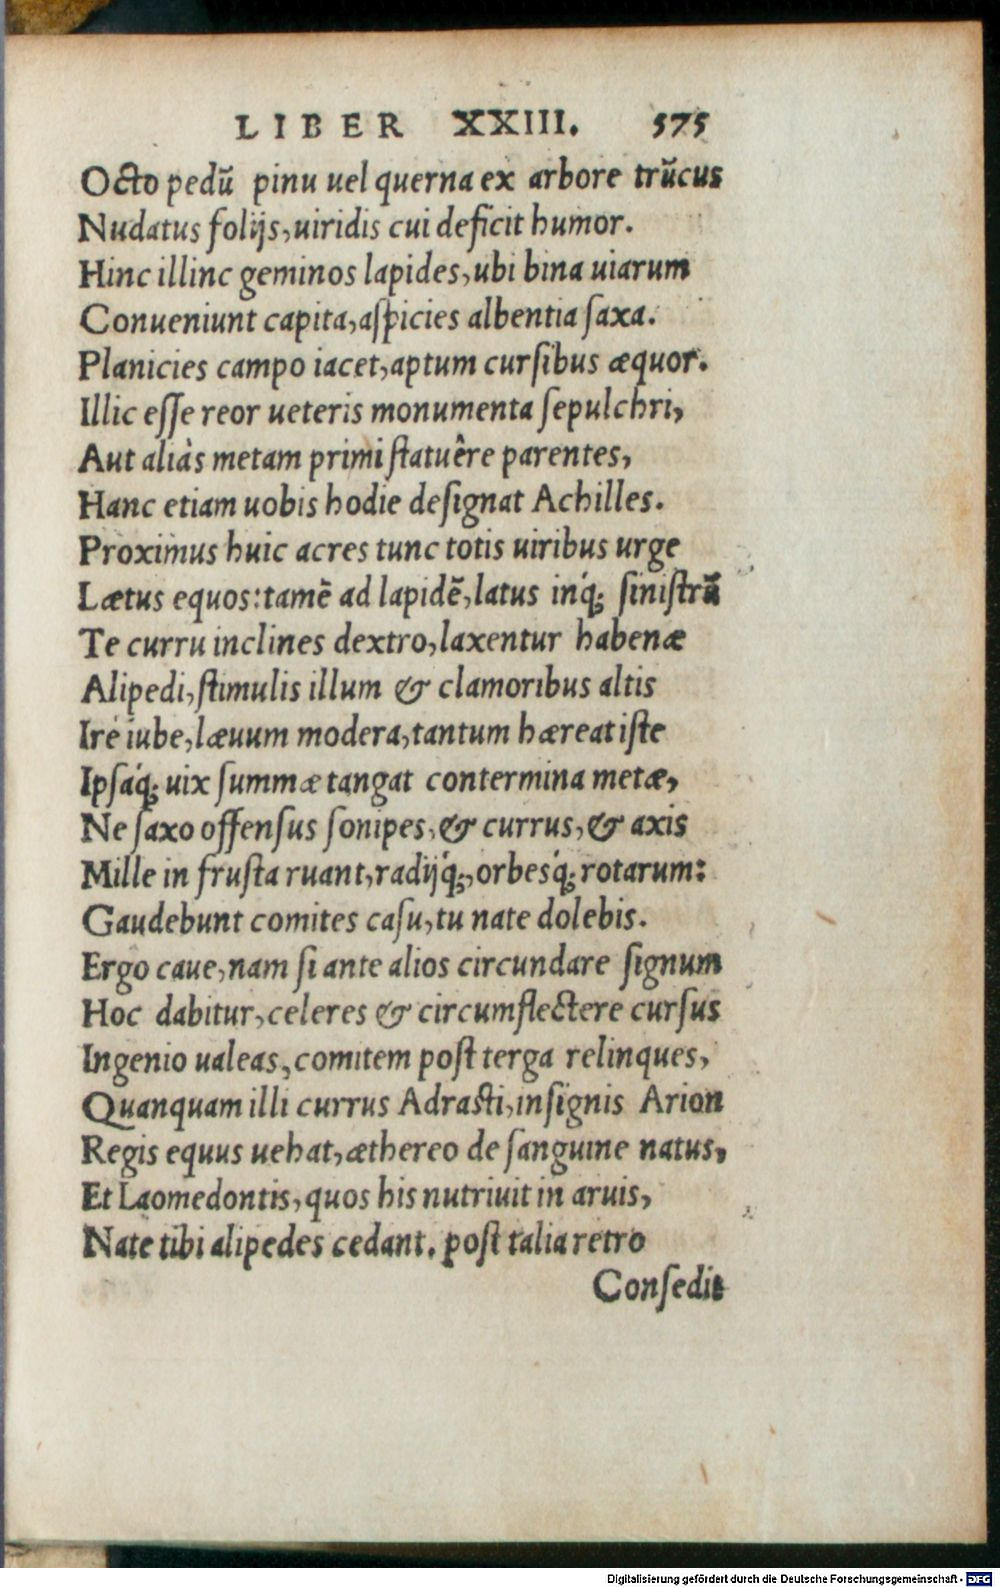 LIBER XXIII. 575
Octo pedũ pinu uel querna ex arbore trũcus
Nudatus folijs, uiridis cui deficit humor.
Hinc illinc geminos lapides, ubi bina uiarum
Conueniunt capita, aſpicies albentia ſaxa.
Planicies campo iacet, aptum curſibus æquor.
Illic eſſe reor ueteris monumenta ſepulchri,
Aut aliàs metam primi ſtatuêre parentes,
Hanc etiam uobis hodie deſignat Achilles.
Proximus huic acres tunc totis uiribus urge
Lætus equos: tamẽ ad lapidẽ, latus inq́; ſiniſtrũ
Te curru inclines dextro, laxentur habenæ
Alipedi, ſtimulis illum & clamoribus altis
Ire iube, læuum modera, tantum hæreat iſte
Ipſaq́; uix ſummæ tangat contermina metæ,
Ne ſaxo offenſus ſonipes, & currus, & axis
Mille in fruſta ruant, radijq́;, orbesq́; rotarum:
Gaudebunt comites caſu, tu nate dolebis.
Ergo caue, nam ſi ante alios circundare ſignum
Hoc dabitur, celeres & circumflectere curſus
Ingenio ualeas, comitem poſt terga relinques,
Quanquam illi currus Adraſti, inſignis Arion
Regis equus uehat, æthereo de ſanguine natus,
Et Laomedontis, quos his nutriuit in aruis,
Nate tibi alipedes cedant. poſt talia retro
Conſedit
Digitalisierung gefördert durch die Deutsche Forschungsgemeinschaft - DFG